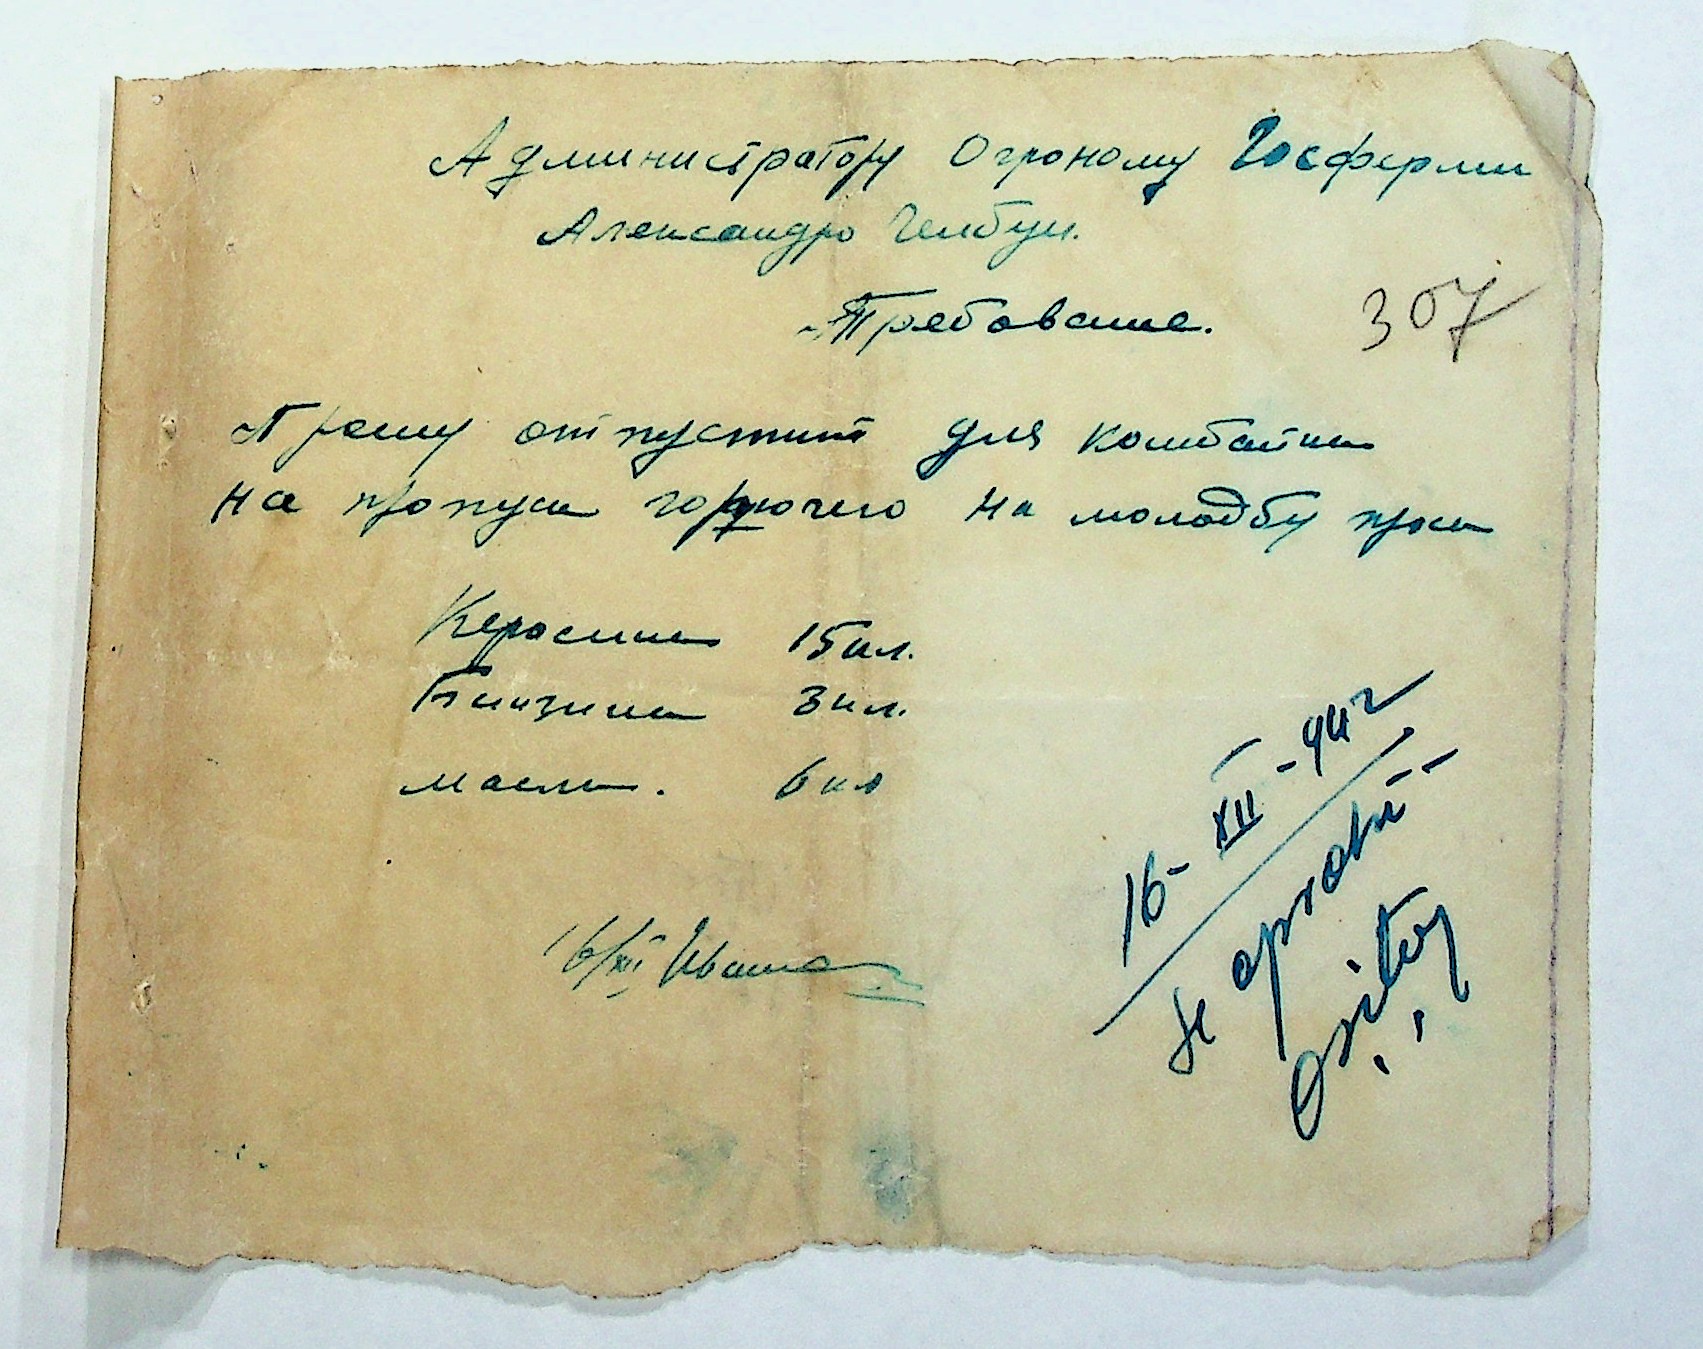 Администратору Огроному Госферми
Александро
Требование.
307
Прошу отпустит для комбайна
на пропуск горючего на молодбу проса
Керосина 15 кл.
Бинзина 3 кл.
масла. 6 кл
16/XII Ивана
16-XII-94г
Se aprobă